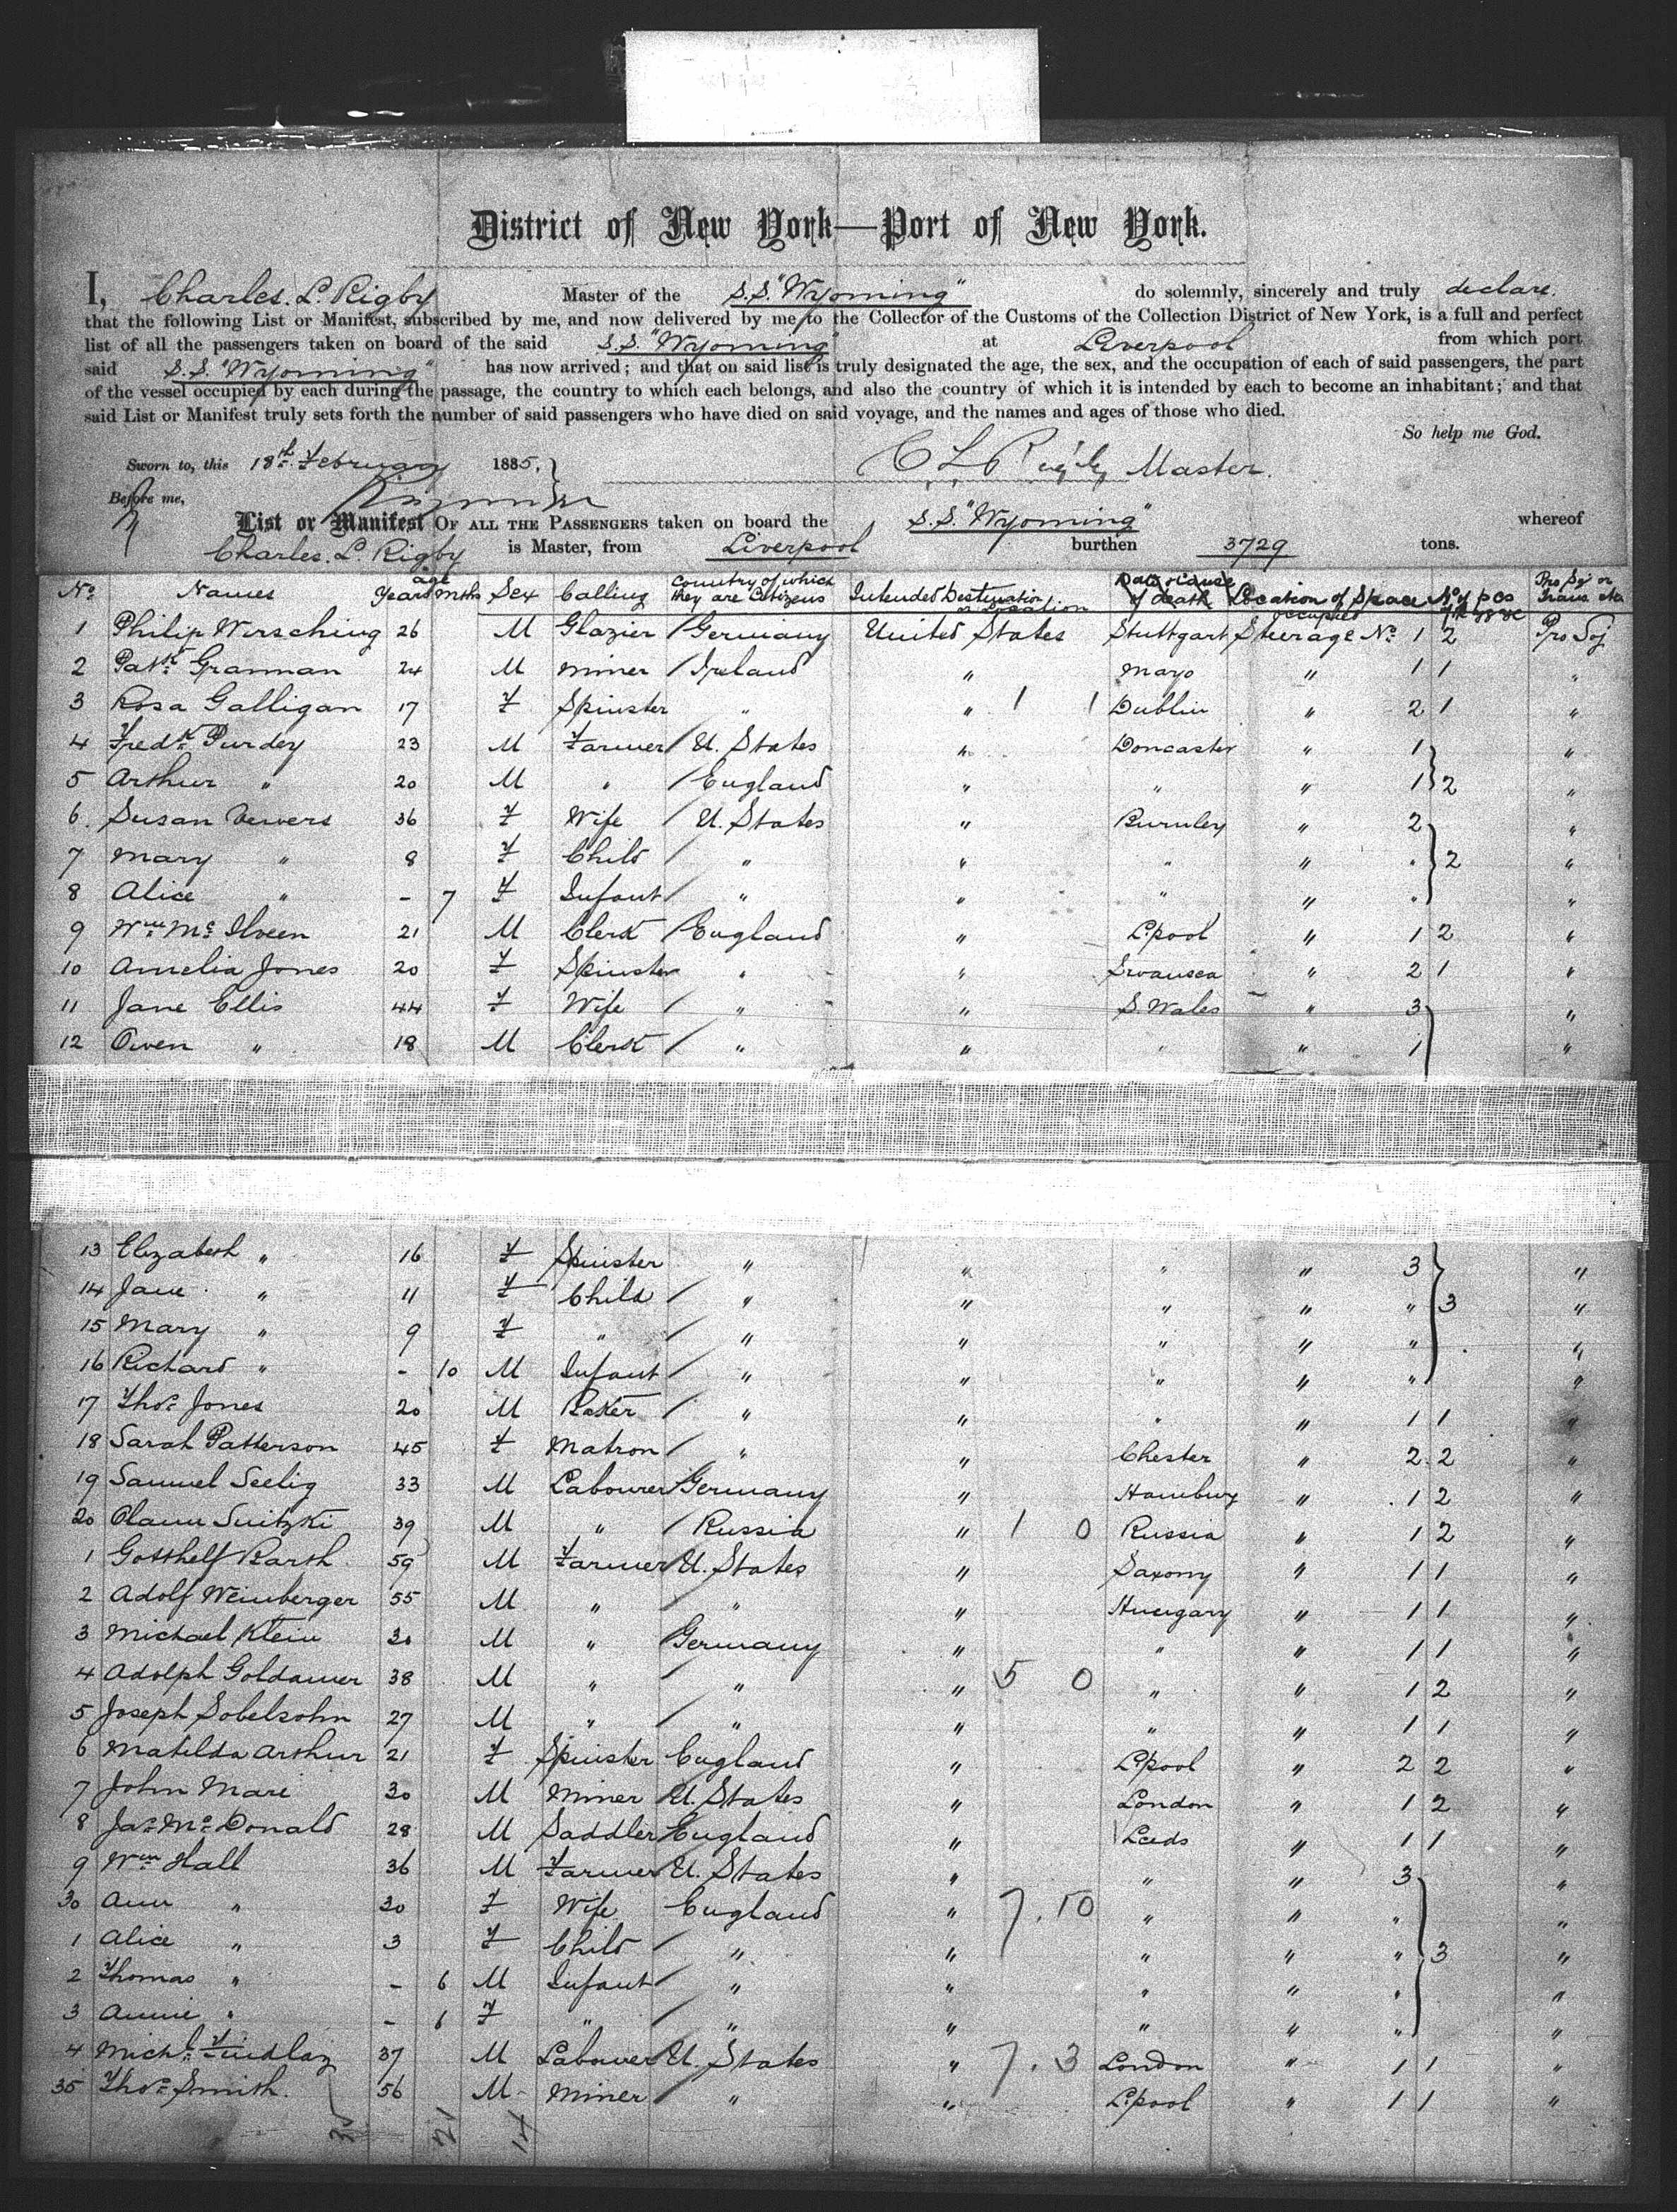 District of New York—Port of New York.
I, Charles. L. Rigby Master of the S.S. "Wyoming" do solemnly, sincerely and truly declare.
that the following List or Manifest, subscribed by me, and now delivered by me to the Collector of the Customs of the Collection District of New York, is a full and perfect
list of all the passengers taken on board of the said S.S. "Wyoming" at Liverpool from which port
said S.S. "Wyoming" has now arrived; and that on said list is truly designated the age, the sex, and the occupation of each of said passengers, the part
of the vessel occupied by each during the passage, the country to which each belongs, and also the country of which it is intended by each to become an inhabitant; and that
said List or Manifest truly sets forth the number of said passengers who have died on said voyage, and the names and ages of those who died.
So help me God.
Sworn to, this 18th February 1885. C L Rigby Master.
Before me,
List or Manifest OF ALL THE PASSENGERS taken on board the S.S. "Wyoming" whereof
Charles. L. Rigby is Master, from Liverpool burthen 3729 tons.
No. Names age Years Mnths Sex Calling Country of which they are Citizens Intended Destination or Location Date & Cause of death Location of Space occupied No of pcs of Baggage Pro Soj or Trans. etc
1 Philip Wirsching 26 M Glazier Germany United States Stuttgart Steerage No. 1 2 Pro Soj
2 Patk Grannan 24 M Miner Ireland " Mayo " 1 1 "
3 Rosa Galligan 17 F Spinster " " 1 1 Dublin " 2 1 "
4 Fredk Purdey 23 M Farmer U. States " Doncaster " 1 "
5 Arthur " 20 M " England " " " 1 2 "
6. Susan Vewers 36 F Wife U. States " Burnley " 2 "
7 Mary " 8 F Child " " " " " 2 "
8 Alice " - 7 F Infant " " " " " "
9 Wm Mc Ilveen 21 M Clerk England " L'pool " 1 2 "
10 Amelia Jones 20 F Spinster " " Swansea " 2 1 "
11 Jane Ellis 44 F Wife " " S. Wales " 3 "
12 Owen " 18 M Clerk " " " " 1 "
13 Elizabeth " 16 F Spinster " " " " 3 "
14 Jane " 11 F Child " " " " " 3 "
15 Mary " 9 F " " " " " " "
16 Richard " - 10 M Infant " " " " " "
17 Thos Jones 20 M Baker " " " " 1 1 "
18 Sarah Patterson 45 F Matron " " Chester " 2 2 "
19 Samuel Seelig 33 M Labourer Germany " Hamburg " 1 2 "
20 Olaun Suitzki 39 M " Russia " 1 0 Russia " 1 2 "
1 Gotthelf Barth 59 M Farmer U. States " Saxony " 1 1 "
2 Adolf Weinberger 55 M " " " Hungary " 1 1 "
3 Michael Klein 30 M " Germany " " " 1 1 "
4 Adolph Goldamer 38 M " " " 5 0 " " 1 2 "
5 Joseph Sobelsohn 27 M " " " " " 1 1 "
6 Matilda Arthur 21 F Spinster England " L'pool " 2 2 "
7 John Mare 30 M Miner U. States " London " 1 2 "
8 Jas Mc Donald 28 M Saddler England " Leeds " 1 1 "
9 Wm Hall 36 M Farmer U. States " " " 3 "
30 Ann " 30 F Wife England " 7. 10 " " " "
1 Alice " 3 F Child " " " " " 3 "
2 Thomas " - 6 M Infant " " " " " "
3 Annie " - 6 F " " " " " " "
4 Michl Findlay 37 M Labourer U. States " 7. 3 London " 1 1 "
35 Thos Smith. 56 M Miner " " L'pool " 1 1 "
21 14